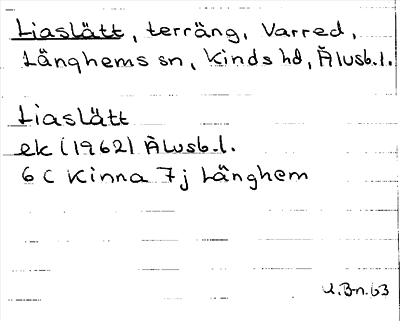 Liaslätt, terräng, Varred,
Länghems sn, Kinds hd, Älvsb.l.
Liaslätt
ek (1962) Älvsb.l.
6 C Kinna 7j Länghem
U.Bn.63